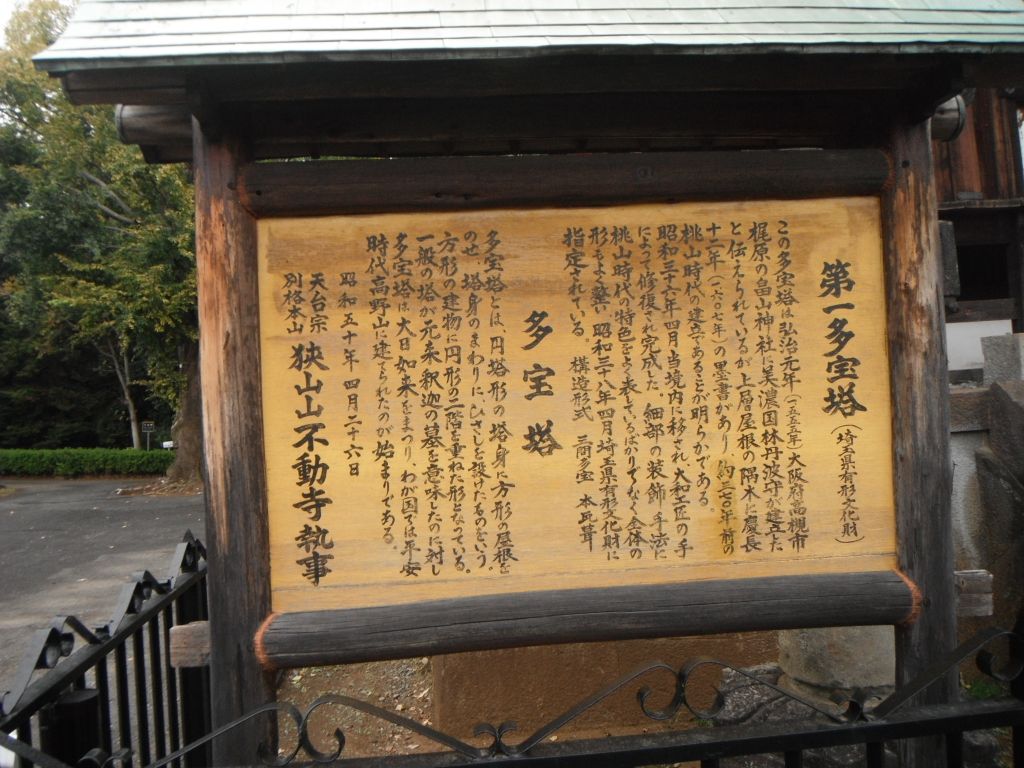 第一多宝塔(埼玉県有形文化財)
この多宝塔は弘治元年(一五五五年)大阪府高槻市
梶原の畠山神社に美濃国林丹波守が建立した
と伝えられているが上層屋根の隅木に慶長
十二年(一六〇七年)の墨書があり 約三七〇年前の
桃山時代の建立であることが明らかである。
昭和三十六年四月当境内に移され 大和工匠の手
によって修復され完成した 細部の装飾 手法に
桃山時代の特色をよく表ているばかりでなく全体の
形もよく整い 昭和三十八年四月埼玉県有形文化財に
指定されている。 構造形式 三間多宝 本瓦葺
多宝塔
多宝塔とは、円塔形の塔身に方形の屋根を
のせ 塔身のまわりに、ひさしを設けたものをいう。
方形の建物に円形の二階を重ねた形となっている。
一般の塔が元来釈迦の墓を意味したのに対し
多宝塔は大日如来をまつり、わが国では平安
時代高野山に建てられたのが始まりである。
昭和五十年 四月二十六日
天台宗
別格本山 狭山山不動寺執事